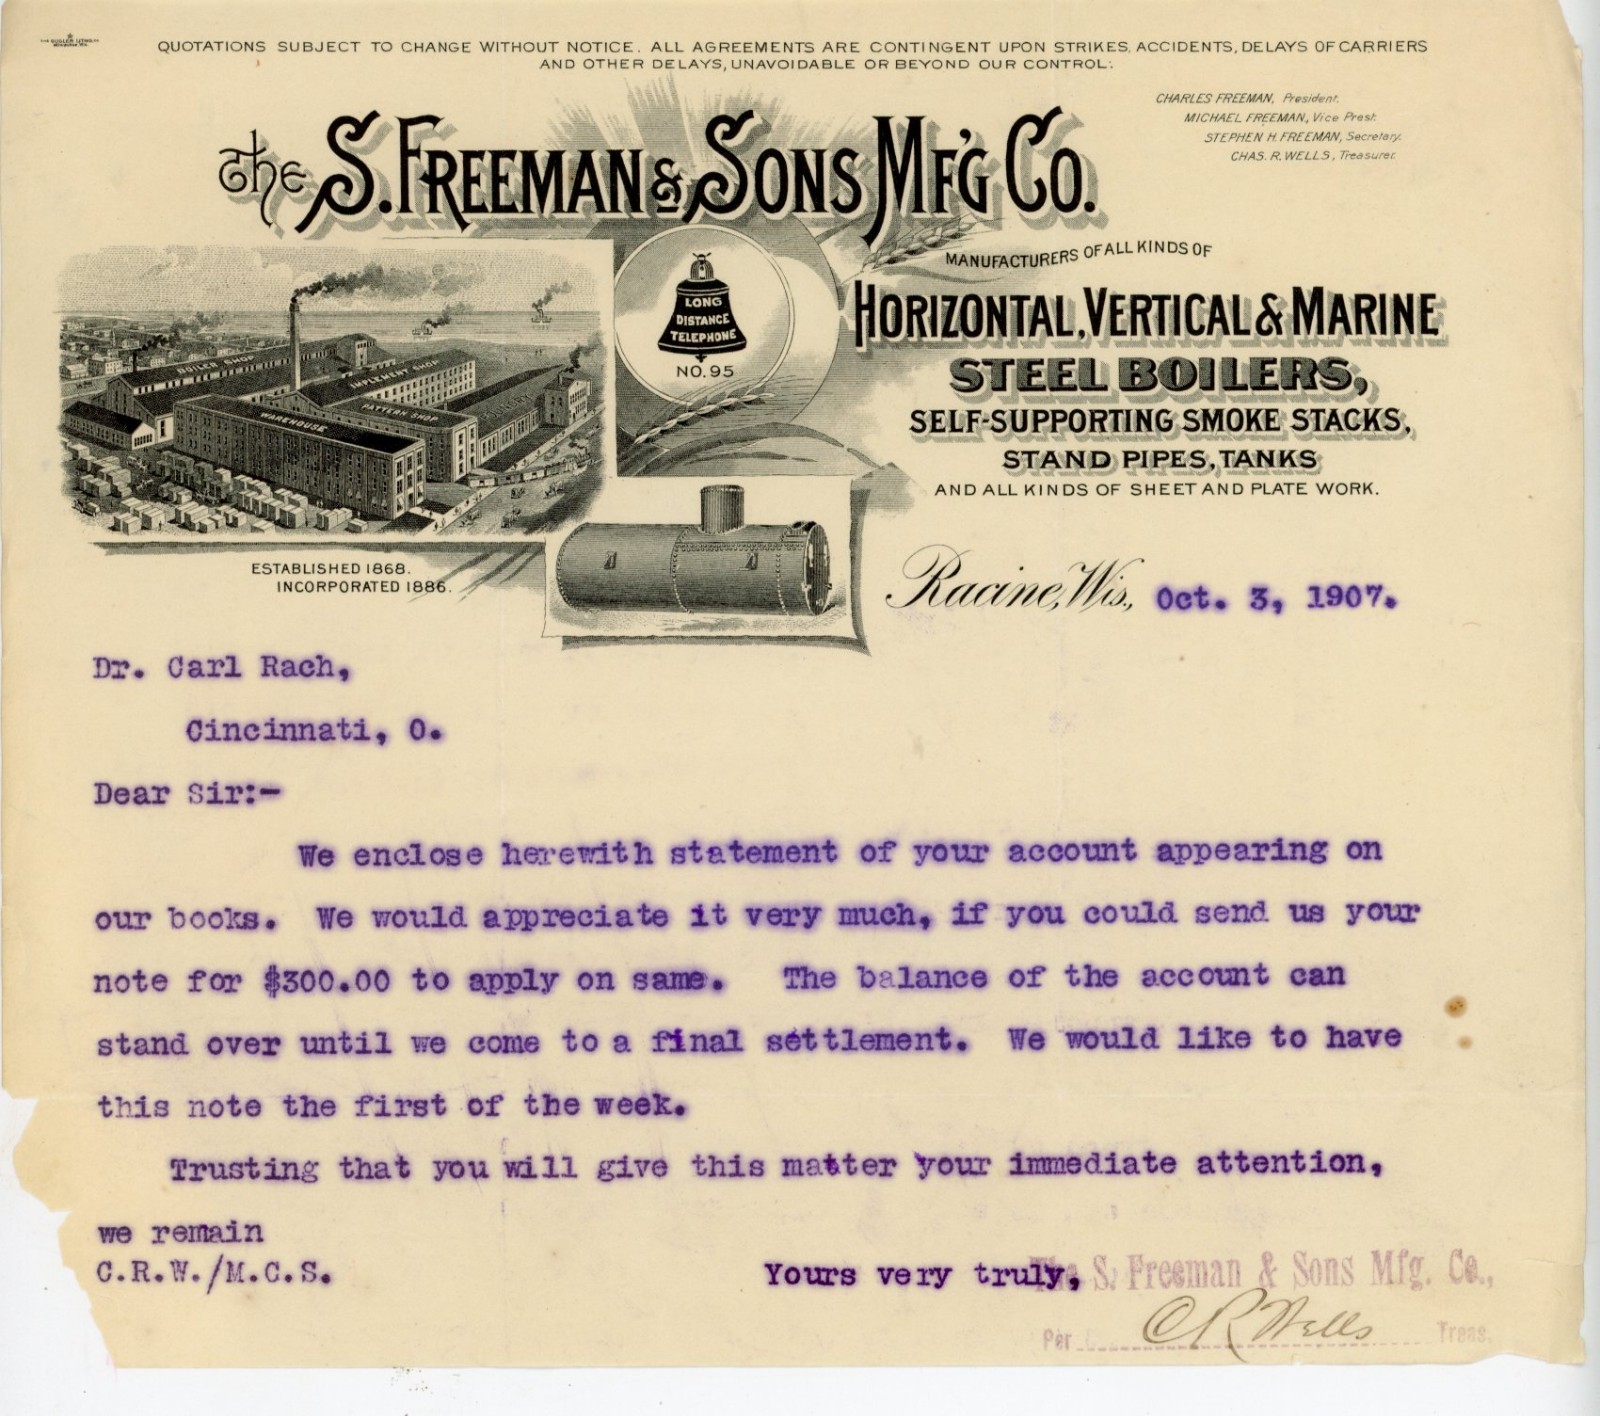 QUOTATIONS SUBJECT TO CHANGE WITHOUT NOTICE. ALL AGREEMENTS ARE CONTINGENT UPON STRIKES, ACCIDENTS, DELAYS OF CARRIERS
AND OTHER DELAYS, UNAVOIDABLE OR BEYOND OUR CONTROL.
CHARLES FREEMAN, President.
MICHAEL FREEMAN, Vice Prest.
STEPHEN H. FREEMAN, Secretary.
CHAS. R. WELLS, Treasurer.
The S. FREEMAN & SONS MF'G CO.
MANUFACTURERS OF ALL KINDS OF
HORIZONTAL, VERTICAL & MARINE
STEEL BOILERS,
SELF-SUPPORTING SMOKE STACKS,
STAND PIPES, TANKS
AND ALL KINDS OF SHEET AND PLATE WORK.
LONG
DISTANCE
TELEPHONE
NO. 95
BOILER SHOP
IMPLEMENT SHOP
PATTERN SHOP
WAREHOUSE
ESTABLISHED 1868.
INCORPORATED 1886.
Racine, Wis., Oct. 3, 1907.
Dr. Carl Rach,
Cincinnati, O.
Dear Sir:-
We enclose herewith statement of your account appearing on
our books. We would appreciate it very much, if you could send us your
note for $300.00 to apply on same. The balance of the account can
stand over until we come to a final settlement. We would like to have
this note the first of the week.
Trusting that you will give this matter your immediate attention,
we remain
C.R.W./M.C.S.
Yours very truly, The S. Freeman & Sons Mfg. Co.,
Per C R Wells Treas.